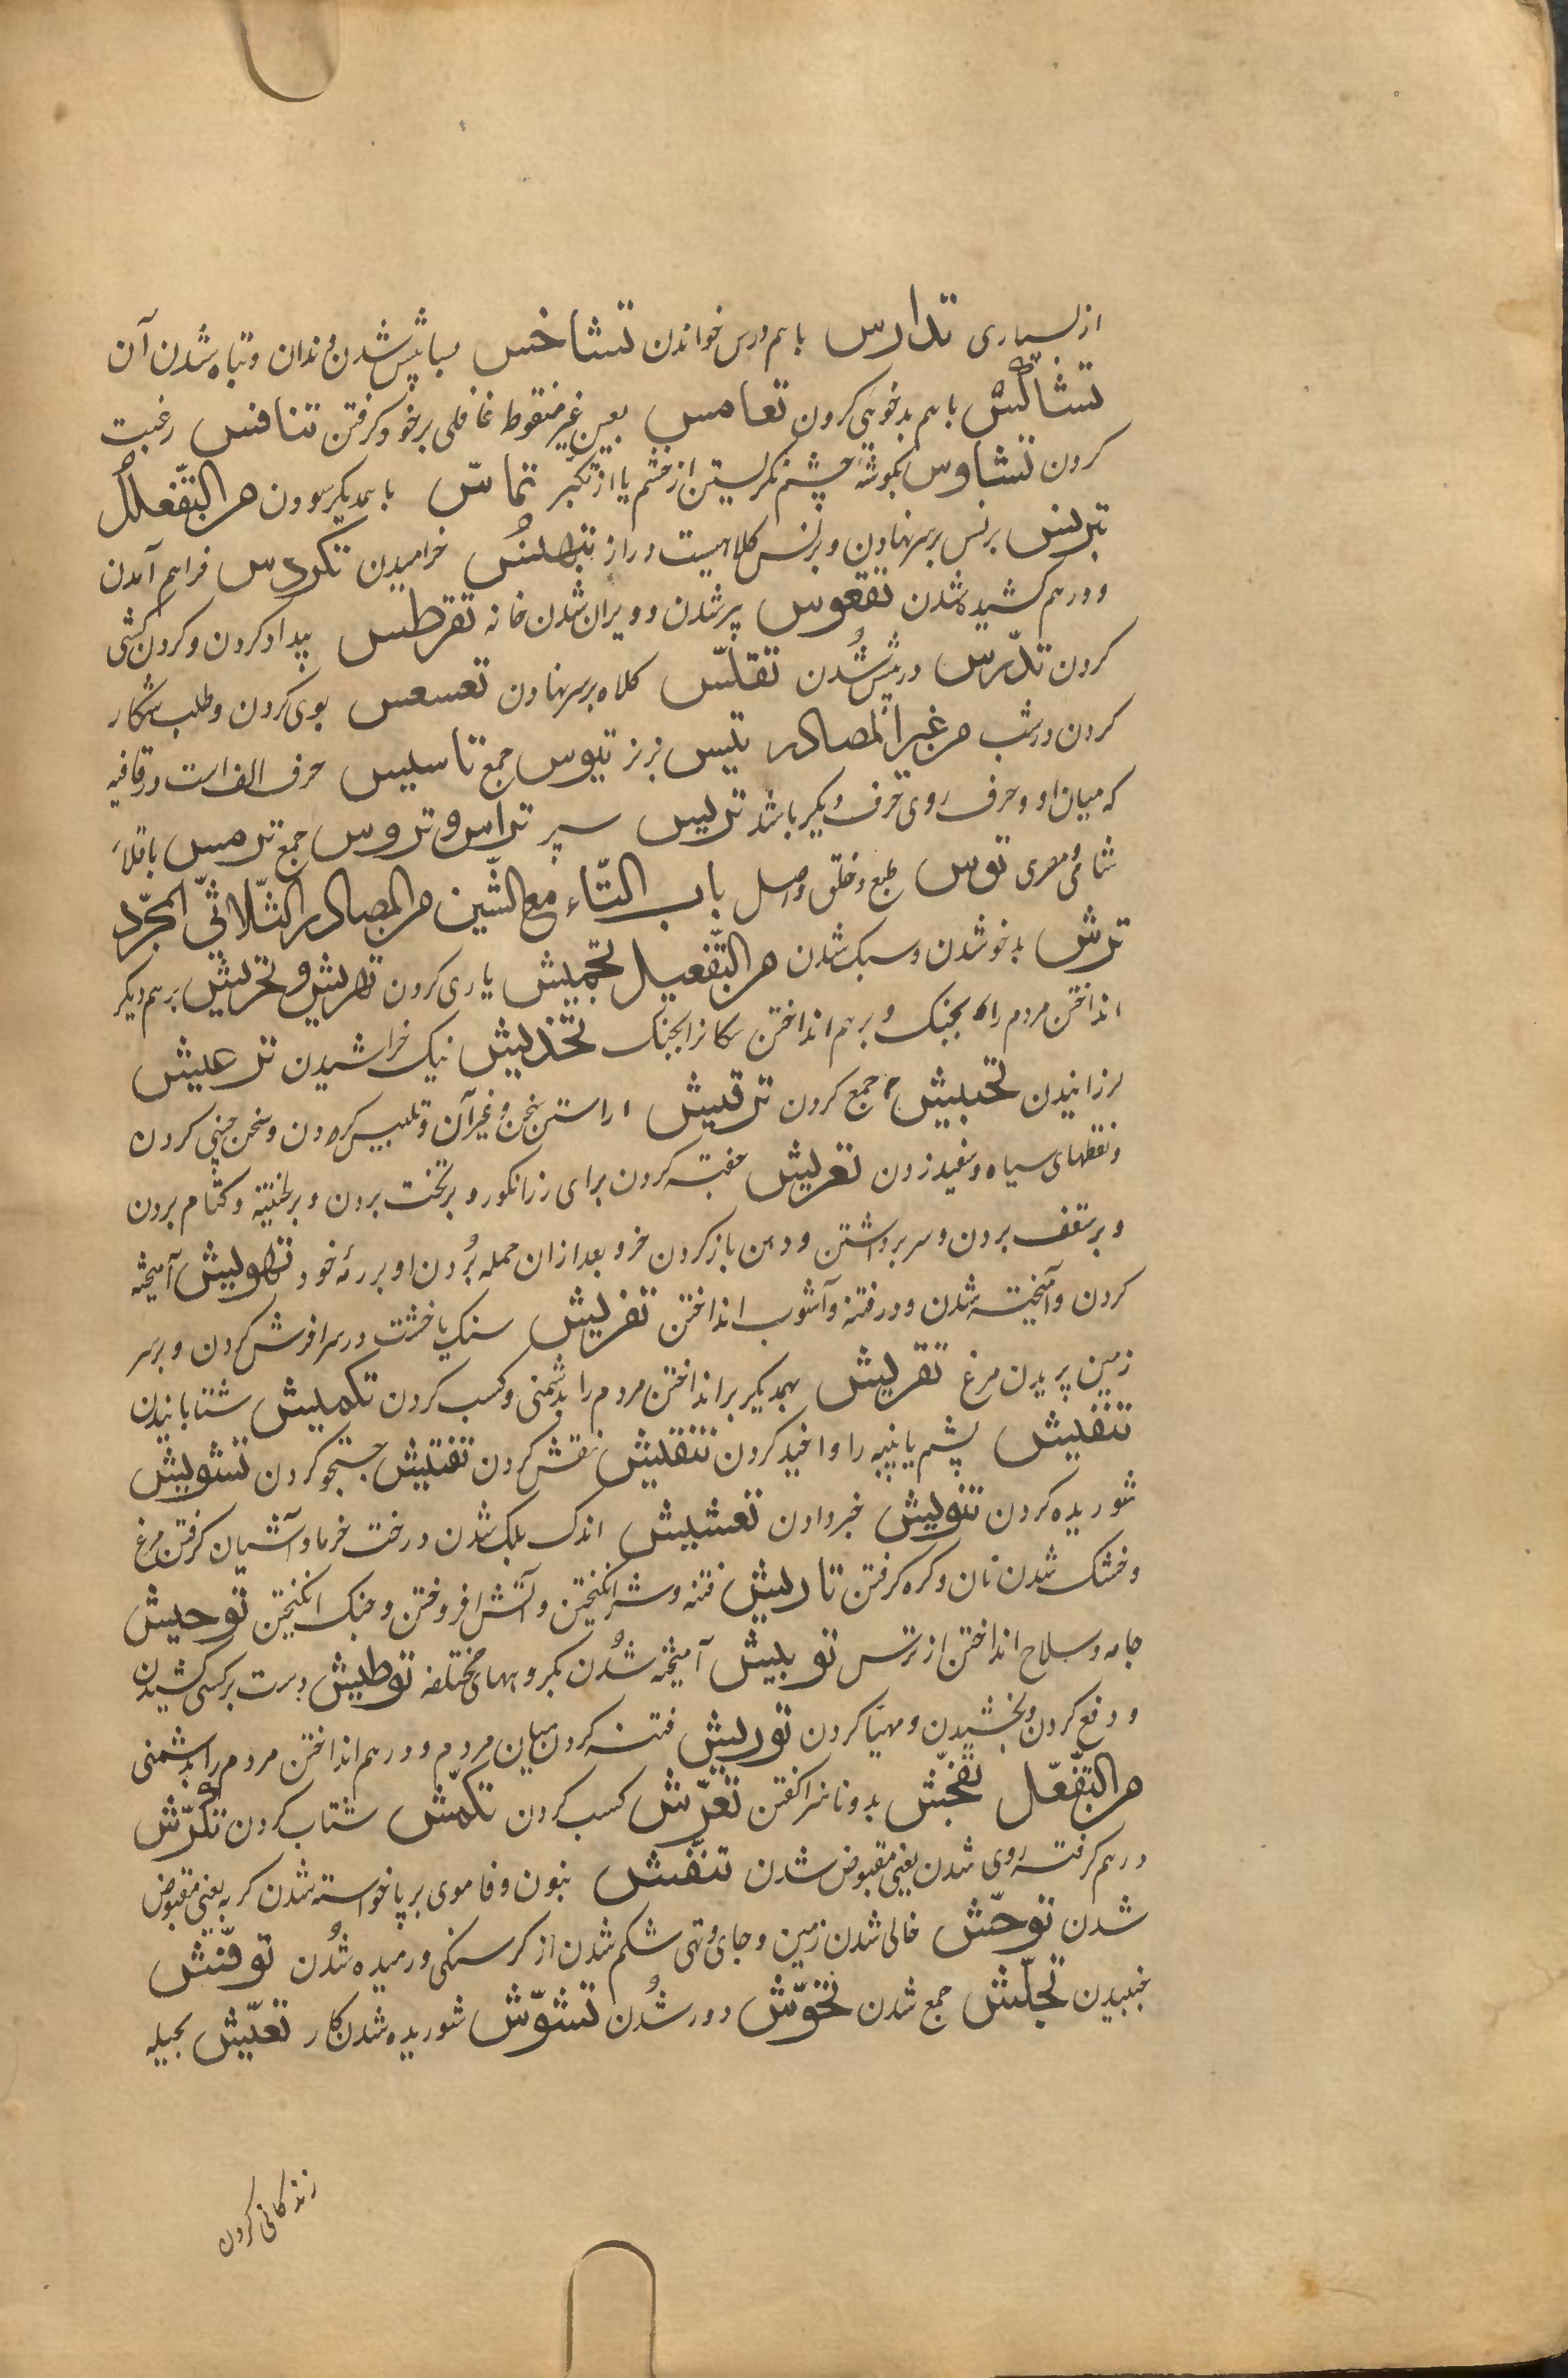 از بسیاری تدارس باهم درس خواندن تشاخس پیش شدن دندان و تباه شدن آن
تشاکس باهم بدخوئی کردن تعامس بعین غیر منقوط غافلی برخود گرفتن تنافس رغبت
کردن تشاوس بگوشهٔ چشم نگریستن از خشم یا از تکبر تماس باهمدیگر سودن من التفعلل
تبرنس برنس بر سر نهادن و برنس کلاهیست دراز تبهنس خرامیدن تکردس فراهم آمدن
و درهم کشیده شدن تقعوس پیر شدن و ویران شدن خانه تقرطس بیداد کردن و گردن کشی
کردن تدرس درپیش شدن تقلس کلاه بر سر نهادن تعسعس بوی کردن و طلب شکار
کردن در شب من غیر المصادر تیس نر بز تیوس جمع تاسیس حرف الف است در قافیه
که میان او و حرف روی حرف دیگر باشد ترس سپر تراس و تروس جمع ترمس باقلاء
شامی و مصری توس طبع و خلق و اصل باب التاء مع الشین من المصادر الثلاثی المجرد
ترش بدخو شدن و سبک شدن من التفعیل تجمیش یاری کردن تهریش و تحریش بر هم دیگر
انداختن مردم را بجنگ و بر هم انداختن سگانرا بجنگ تخدیش نیک خراشیدن ترعیش
لرزانیدن تحبیش جمع کردن ترقیش اراستن سخن و غیر آن و تلبیس کردن و سخن چینی کردن
و نقطهای سیاه و سفید زدن تعریش جفته کردن برای رز انگور و بر تخت بردن و بر طنفسه و کتام بردن
و بر سقف بردن و سر برداشتن و دهن باز کردن خر و بعد از ان حمله بردن او بر رمه خود تهویش آمیخته
کردن و آمیخته شدن و در فتنه و آشوب انداختن تفریش سنگ یا خشت در سرا فرش کردن و بر سر
زمین پریدن مرغ تقریش بهمدیگر بر انداختن مردم را بدشمنی و کسب کردن تکمیش شتابانیدن
تنفیش پشم یا پنبه را واخید کردن تنقیش نقش کردن تفتیش جستجو کردن تشویش
شوریده کردن تنویش خبر دادن تعشیش اندک بلک شدن درخت خرما و آشیان گرفتن مرغ
و خشک شدن نان و کره گرفتن تاریش فتنه و شر انگیختن و آتش افروختن و جنگ انگیختن توحیش
جامه و سلاح انداختن از ترس توبیش آمیخته شدن بگروههای مختلفه توطیش دست بر کسی کشیدن
و دفع کردن و بخشیدن و مهیا کردن توریش فتنه کردن میان مردم و درهم انداختن مردم را بدشمنی
من التفعل تفحش بد و ناسزا گفتن تعرش کسب کردن تکمش شتاب کردن تکرش
درهم گرفته روی شدن یعنی مقبوض شدن تنفش بنون و فا موی بر پا خواسته شدن گربه یعنی مقبوض
شدن توحش خالی شدن زمین و جای و تهی شکم شدن از گرسنگی و رمیده شدن توقش
جنبیدن تجلش جمع شدن تخوش دور شدن تشوش شوریده شدن کار تعیش بحیله
زندگانی کردن